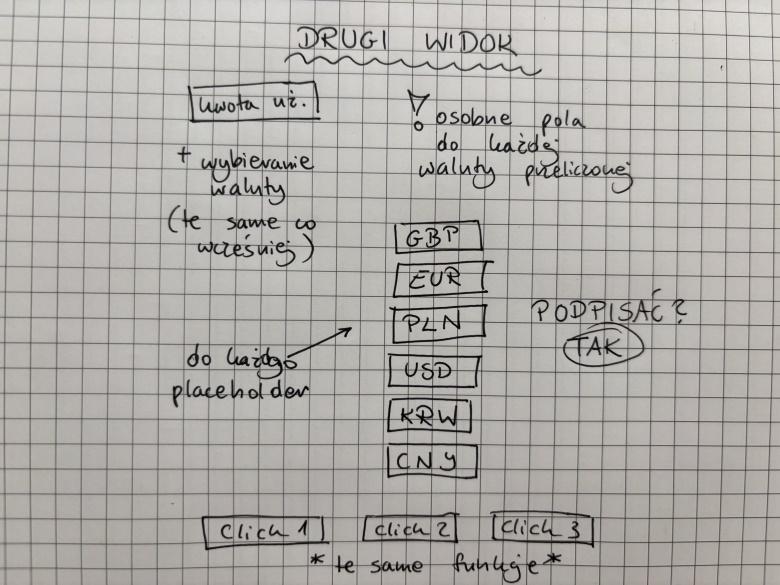 DRUGI WIDOK
kwota uż.
+ wybieranie
waluty
(te same co
wcześniej)
! osobne pola
do każdej
waluty przeliczonej
GBP
EUR
PLN
USD
KRW
CNY
do każdgo
placeholder
PODPISAĆ?
TAK
Click 1
Click 2
Click 3
* te same funkcje *